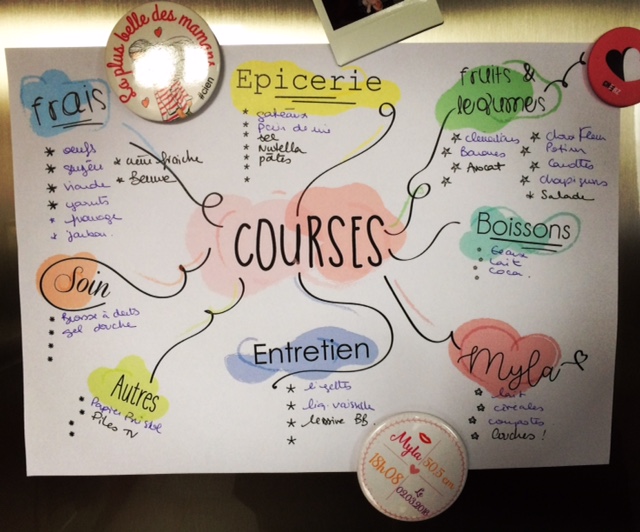 La plus belle des mamans
frais
oeufs
gruyère
viande
yaourts
fromage
jambon
crème fraîche
Beurre
Epicerie
gateaux
Pain de mie
sel
Nutella
pâtes
fruits &
legumes
clementines
Bananes
Avocat
chou fleur
Potiron
carottes
champignons
Salade
COURSES
Boissons
Eaux
Lait
coca
Soin
Brosse à dents
gel douche
Entretien
lingettes
liq. vaisselle
lessive BB
Myla
lait
céréales
compotes
Couches !
Autres
Papier
Piles TV
Myla
50,5 cm
18h08
Le